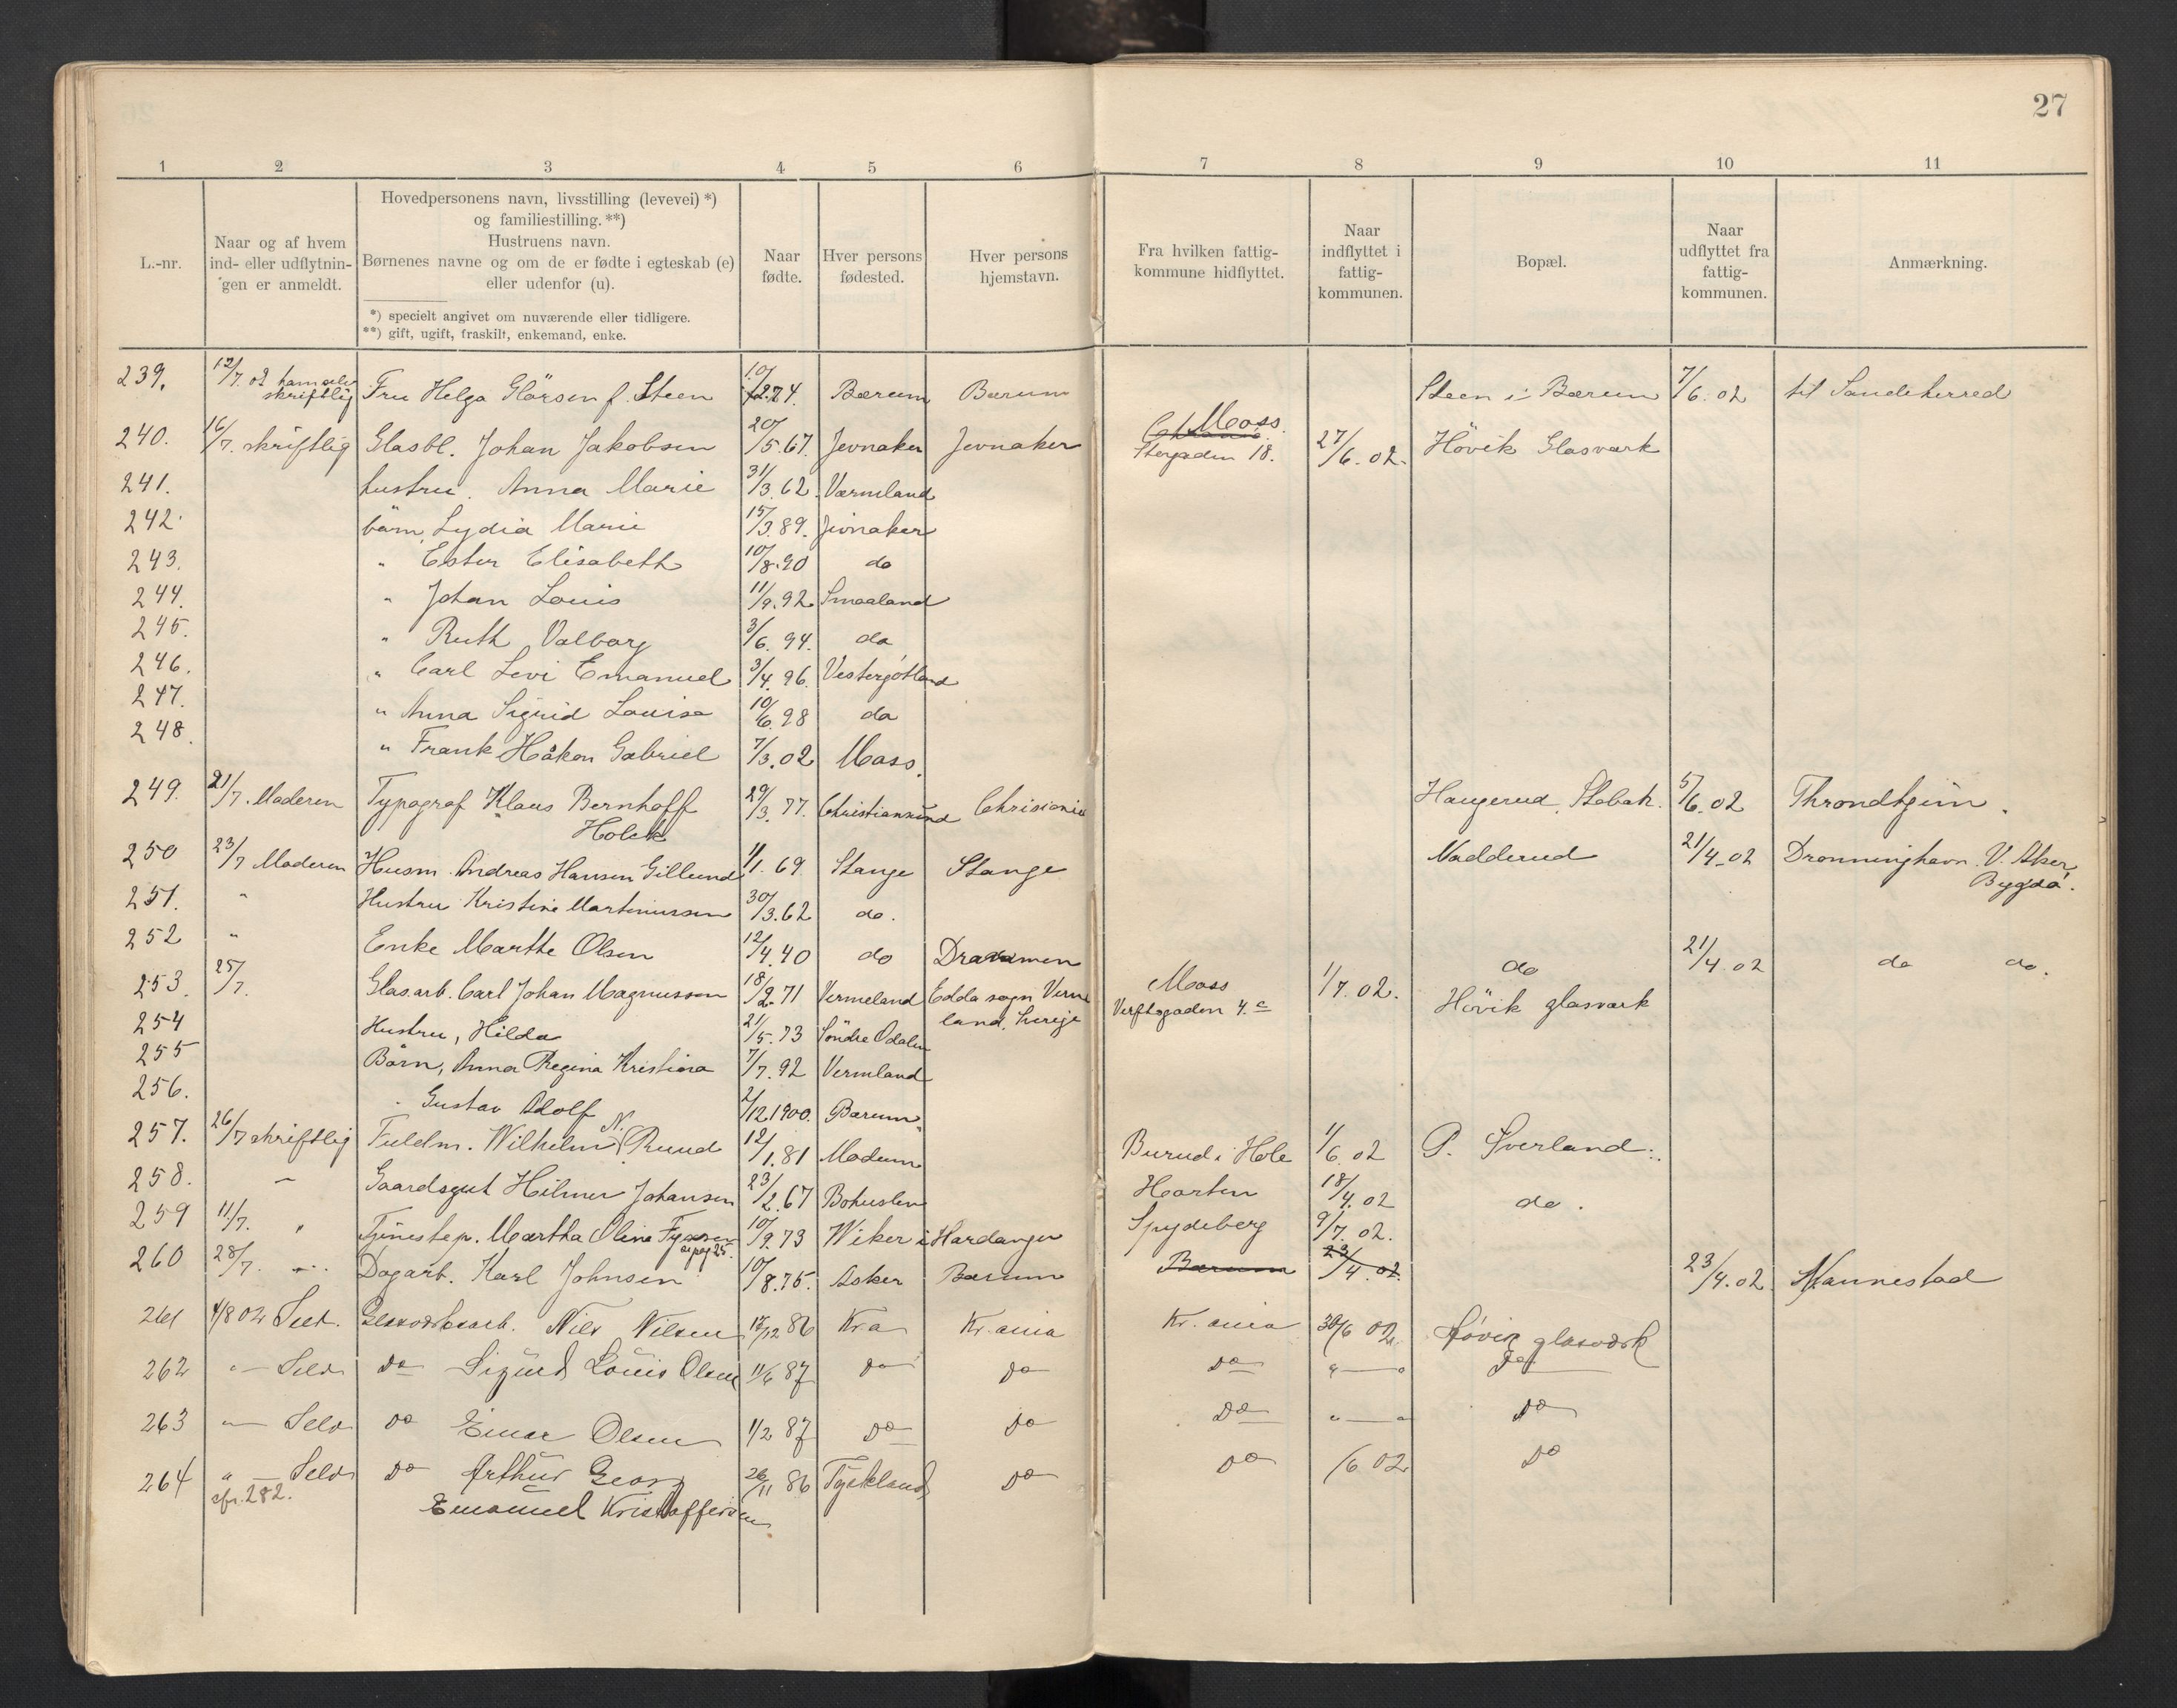 27
1 2 3 4 5 6 7 8 9 10 11
L.-nr.
Naar og af hvem
ind- eller udflytnin-
gen er anmeldt.
Hovedpersonens navn, livsstilling (levevei) *)
og familiestilling. **)
Hustruens navn.
Børnenes navne og om de er fødte i egteskab (e)
eller udenfor (u).
*) specielt angivet om nuværende eller tidligere.
**) gift, ugift, fraskilt, enkemand, enke.
Naar
fødte.
Hver persons
fødested.
Hver persons
hjemstavn.
Fra hvilken fattig-
kommune hidflyttet.
Naar
indflyttet i
fattig-
kommunen.
Bopæl.
Naar
udflyttet fra
fattig-
kommunen.
Anmærkning.
239. 12/7.02 skriftlig Fru Helga Glörsen f. Steen 10/12.74. Bærum Bærum Steen i Bærum 7/6.02 til Sandeherred
240. 16/7. skriftlig Glasbl. Johan Jakobsen 20/5.67. Jevnaker Jevnaker Moss. 18. 27/6.02. Hövik Glasværk
241. hustru. Anna Marie 31/3.62. Værmland
242. börn, Lydia Marie 15/3.89. Jevnaker
243. " Ester Elisabeth 10/8.90 do
244. " Johan Louis 11/9.92. Smaaland
245. " Ruth Valborg 3/6.94. do
246. " Carl Levi Emanuel 3/4.96. Vestergötland
247. " Anna Sigrid Lovisa 10/6.98 do
248. " Frank Håkon Gabriel 7/3.02 Moss.
249. 21/7. Moderen Typograf Klaus Bernhoff 29/3.77. Christiansund Chrisiania Haugerud, Stabæk. 5/6.02 Throndhjem.
Holck
250 23/7 Moderen Husm. Andreas Hansen Gillund 1/1.69. Stange Stange Nadderud 21/4.02 Dronninghavn V. Aker,
Bygdö.
251. " Hustru Kristine Martinussen 30/3.62 do.
252 " Enke Marthe Olsen 12/4.40 do Drammen do 21/4.02 do do.
253. 25/7. Glasarb. Carl Johan Magnusson 18/2.71 Vermeland Edda sogn Verm Moss 1/7.02. Hövik glasværk
land, Sverige Verftsgaden 4.c
254 Hustru, Hilda 21/5.73 Söndre Odalen
255 Börn, Anna Regina Kristina 7/7.92 Vermland
256. " Gustav Adolf 2/12 1900. Bærum.
257. 26/7 skriftlig Fuldm. Wilhelm N. Ruud 12/1.81 Modum Burud i Hole 1/6.02 P. Sverland.
258. " Gaardsgut Hilmer Johansen 23/2.67 Bohuslen Horten 18/4.02 do.
259 11/7. " Tjenestep. Martha Oline 10/9.73 Wiker i Hardanger Spydeberg 9/7.02.
pag 25.
260 28/7. " Dagarb. Karl Johnsen 10/8.75. Asker Bærum Bærum 23/4.02. 23/4.02 Nannestad
261 4/8 02 Selv. Glasværksarb. Nils Nilsen 17/12 86 Kr.a Kr.ania Kr.ania 30/6 02. Hövik glasværk
262 " Selv Do Sigurd Louis Olsen 11/6 87 Do Do Do " — " Do
263 " Selv Do Einar Olsen 1/2 87 Do Do Do " — " Do
264 " Selv Do Arthur Georg 26/11 86 Tyskland Do Do /6 02 Do
cfr. 282. Emanuel Kristoffersen